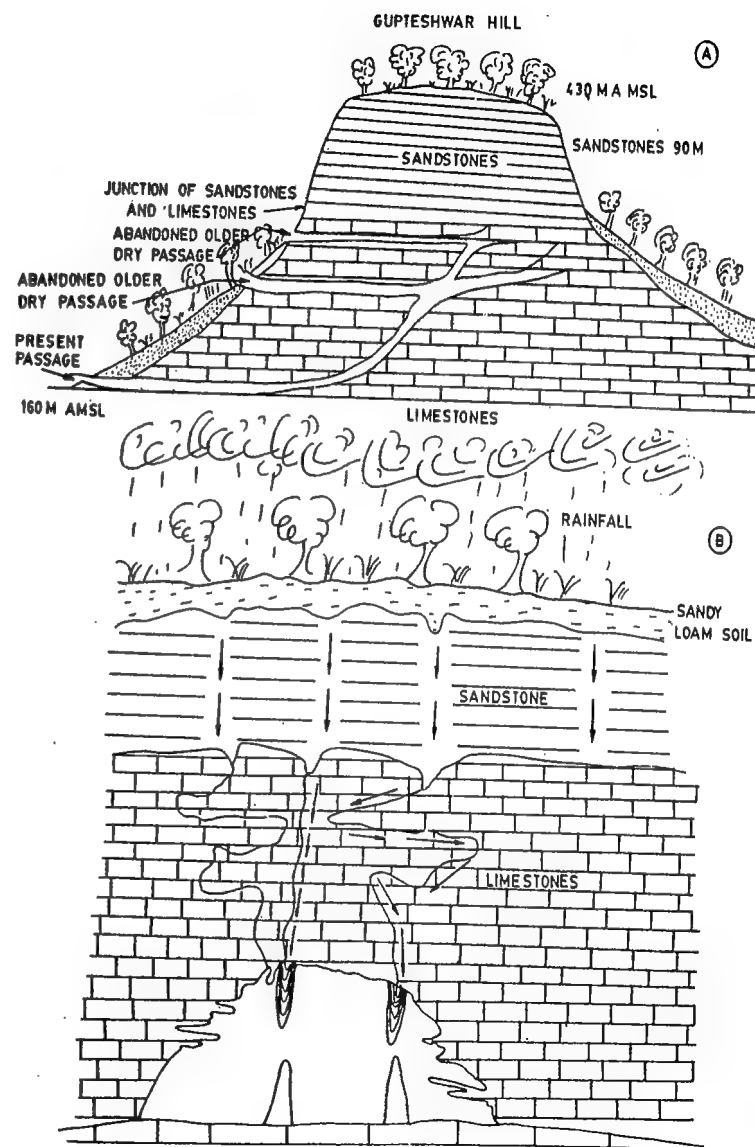 GUPTESHWAR HILL
A
430 M A MSL
SANDSTONES 90M
SANDSTONES
JUNCTION OF SANDSTONES
AND LIMESTONES
ABANDONED OLDER
DRY PASSAGE
ABANDONED OLDER
DRY PASSAGE
PRESENT
PASSAGE
160M AMSL
LIMESTONES
RAINFALL
B
SANDY
LOAM SOIL
SANDSTONE
LIMESTONES